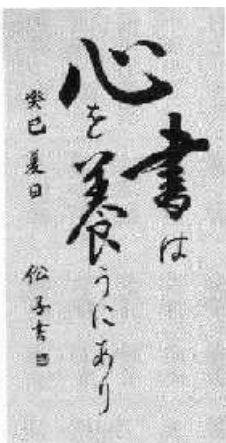 書は
心を養うにあり
癸巳 夏日 松子書